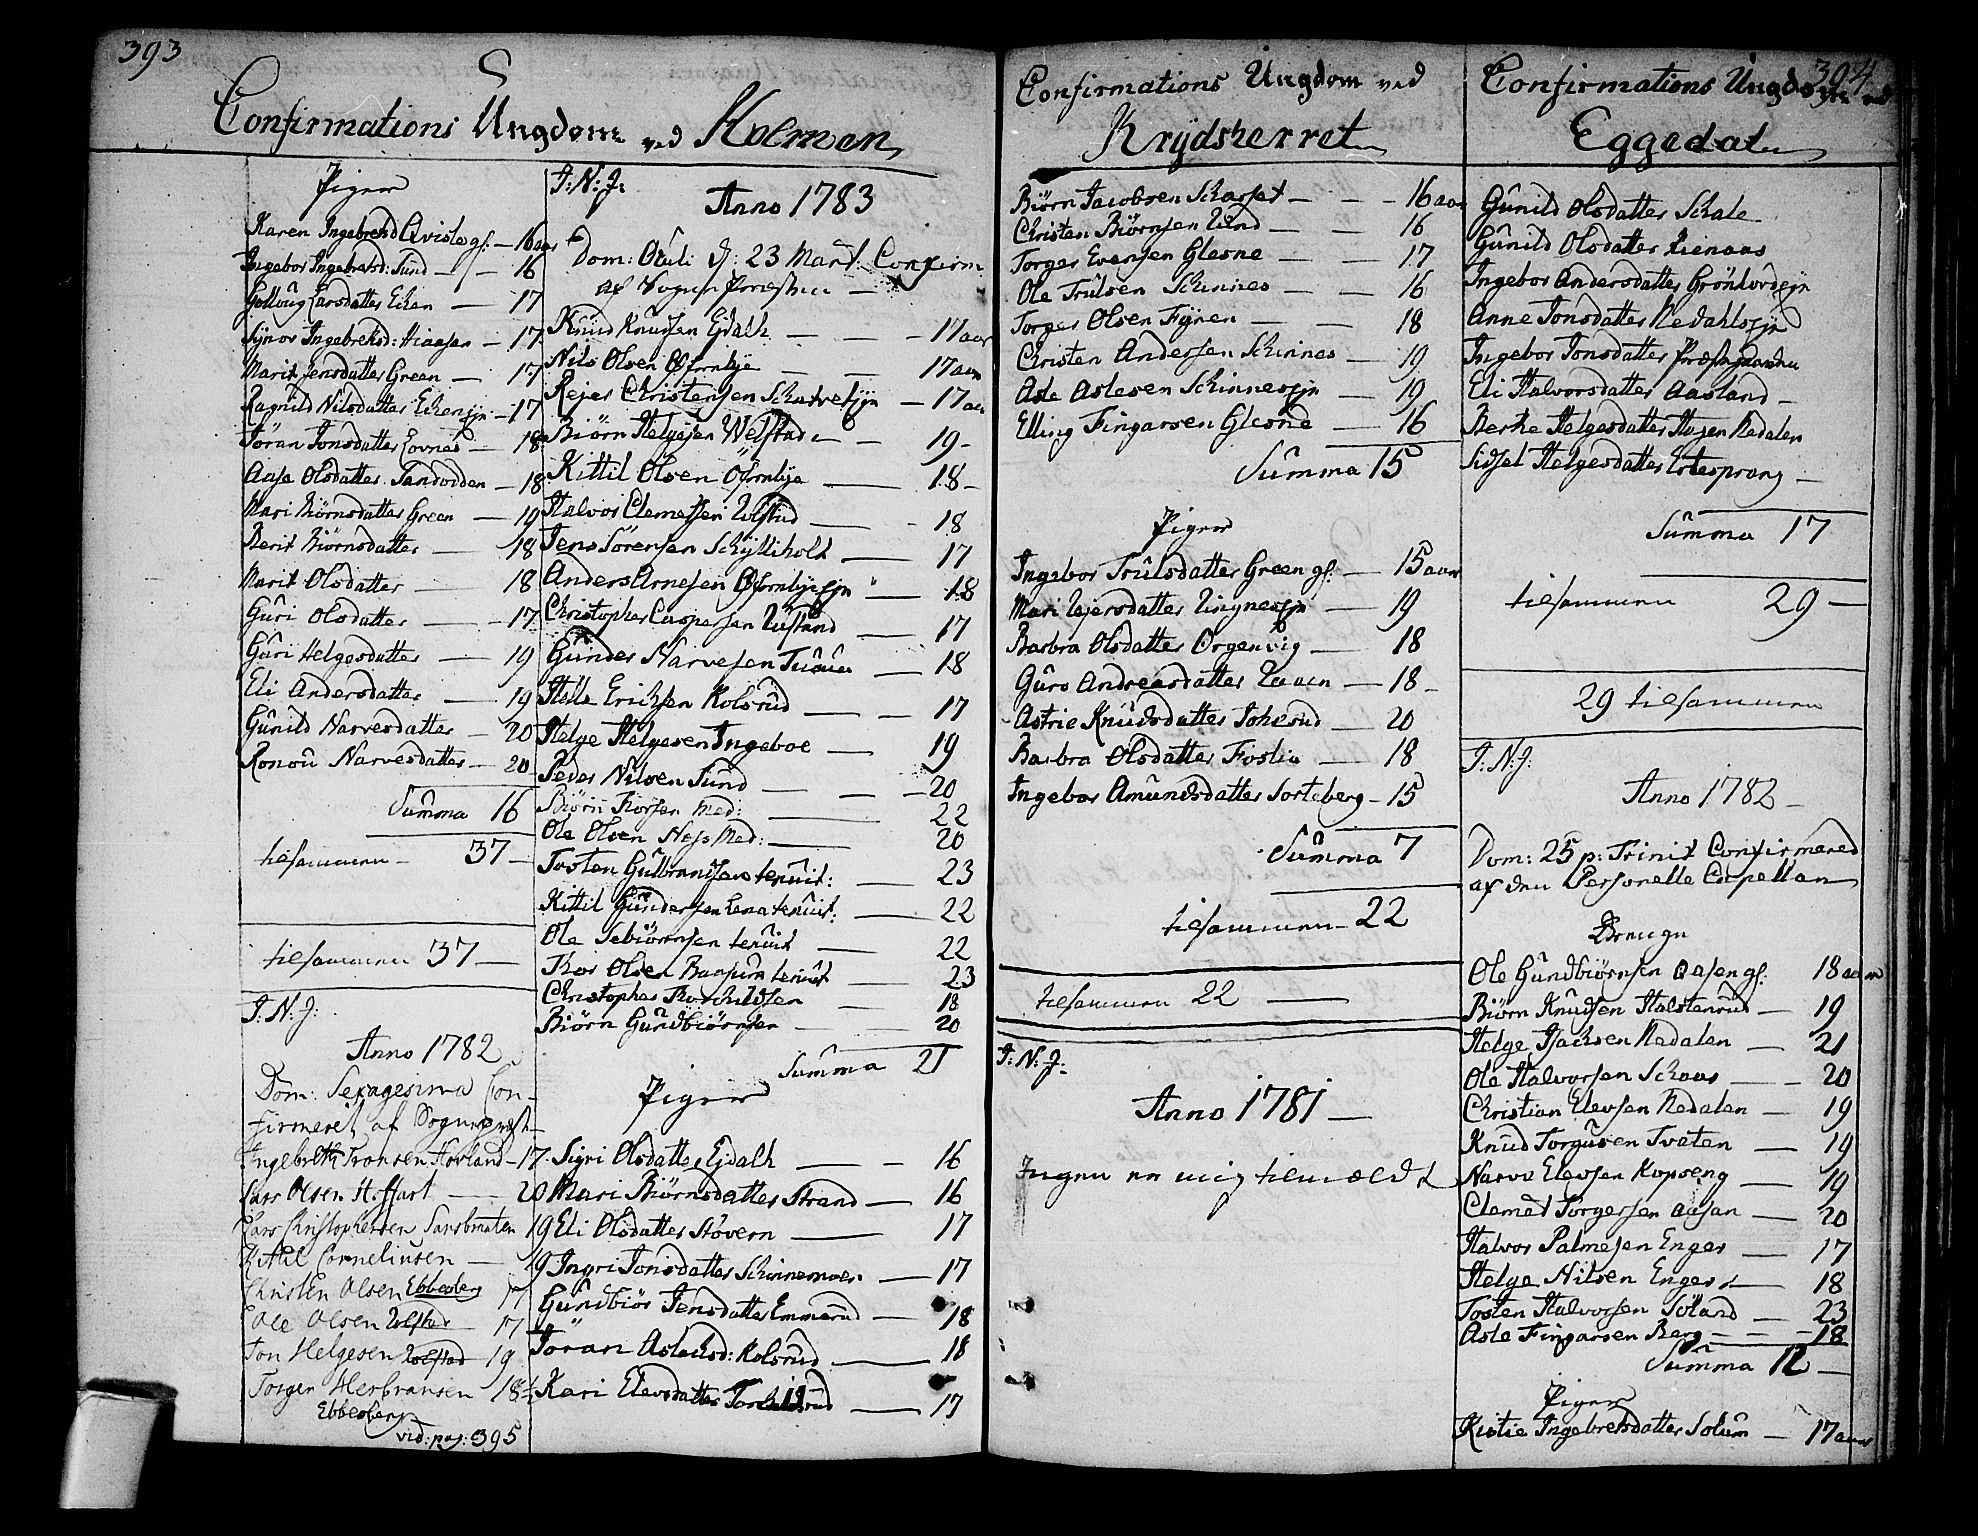 393
Confirmations Ungdom ved Holmen
Piger
Karen Ingebretsd Qvisle gl: – 16 aar
Ingebor Ingebretsd: Sund – 16
Golloug Larsdatter Eken – 17
Synor Ingebretsd: Hiaasen – 17
Marit Jensdatter Green – 17
Ragnild Nilsdatter Ekenejn – 17
Jöran Jonsdatter Lovnes – 18
Aase Olsdatter Sandodden – 18
Mari Biörnsdatter Green – 19
Berit Biörnsdatter – 18
Marit Olsdatter – 18
Guri Olsdatter – 17
Guri Helgesdatter – 19
Eli Andersdatter – 19
Gunild Narvesdatter – 20
Ronou Narvesdatter – 20
Summa 16
tilsammen – 37 –
tilsammen 37 –
I: N: J:
Anno 1782
Dom: Sexagesima Con-
firmeret af Sognepræst
Ingebreth Tronsen Hovland – 17
Lars Olsen Hoffart – 20
Lars Christophersen Sandsbraaten 19
Kittil Corneliusen – 19
Christen Olsen Ebbesberg 17
Ole Olsen Ulfstad 17
Jon Helgesen Ulfstad 19
Torger Herbransen 18½
Ebbesberg
vid: pag: 395
I: N: J:
Anno 1783
Dom: Oculi d: 23 Mart: Confirm
af Sogne Præsten –
Knud Knudsen Ejdahl – 17 aar
Nils Olsen Øfrnbye – 17 aar
Rejer Christensen Schartvetejn – 17 aar
Biörn Helgesen Wlfstad – 19 –
Kittil Olsen Öfrnbye – 18 –
Halvor Clemetsen Ulfstad – 18
Jens Sörensen Schÿlliholt – 17
Anders Arnesen Øfrnbyeejn – 18
Christopher Caspersen Ulfstand – 17
Gunder Narvesen – 18
Helle Erichsen Kolsrud – 17
Helge Helgesen Ingeboe – 19
Peder Nilsen Sund – 20
Biörn Torsen Med: – 22
Ole Olsen Ness Med: – 20
Tosten Gulbrandsen tenuit: – 23
Kittil Gundersen Lena tenuit: – 22
Ole Sebiörnsen tenuit – 22
Thor Olsen Baasum tenuit – 23
Christopher Thorchildsen – 18
Biörn Gundbiörnsen – 20
Summa 21
Piger
Sigri Olsdatter Ejdahl – 16
Mari Biörnsdatter Strand – 16
Eli Olsdatter Stövern – 17
Ingri Jonsdatter Schinnemoen – 17
Gundbiör Jensdatter Emmerud – 18
Jöran Aslachsd: Kolsrud – 18
Kari Elevsdatter Torchildsrud – 17
Confirmations Ungdom ved
Krydsherret
Biörn Jacobsen Scharset – 16 aar
Christen Biörnsen Lund – 16
Torger Evensen Glesne – 17
Ole Trulsen Schinnes – 16
Torger Olsen Fÿnen – 18
Christen Andersen Schinnes – 19
Asle Aslesen Schinnesejn – 19
Elling Fingarsen Glesne – 16
Summa 15
Piger
Ingebor Trulsdatter Green gl: – 15 aar
Mari Rejersdatter Ringnesejn – 19
Barbra Olsdatter Orgenvig – 18
Guro Andreasdatter Raaen – 18 –
Astrie Knudsdatter Johnsrud – 20
Barbra Olsdatter Foslie – 18
Ingebor Amundsdatter Sorteberg – 15
Summa 7
tilsammen – 22
tilsammen 22 –
I: N: J:
Anno 1781 –
Ingen er mig tilmældt
394
Confirmations Ungdom ved
Eggedal
Gunild Olsdatter Schale
Gunild Olsdatter Kienaas
Ingebor Andersdatter Grönhovdejn
Anne Jonsdatter Nedahlsejn
Ingebor Jonsdatter Præstegaarden
Eli Halvorsdatter Aasland –
Berthe Helgesdatter Husen Nedalen
Sidsel Helgesdatter Ertesprang –
Summa 17
tilsammen 29 –
29 tilsammen
I: N: J:
Anno 1782 –
Dom: 25 p: Trinit Confirmered
af den Personelle Capellan
Drenge
Ole Gundbiörnsen Aasen gl: 18 aar
Biörn Knudsen Halstenrud – 19
Helge Isachsen Nedalen – 21
Ole Halvorsen Schaar – 20
Christian Elevsen Nedalen – 19
Knud Torgusen Tvaten – 19
Narve Elevsen Kopseng – 19
Clemet Torgersen Aasan – 20
Halvor Palmesen Enger – 17
Helge Nilsen Enger – 18
Tosten Halvorsen Söland – 23
Asle Fingarsen Berg – 18
Summa 12 –
Piger
Kistie Ingebretsdatter Solum – 17 aar